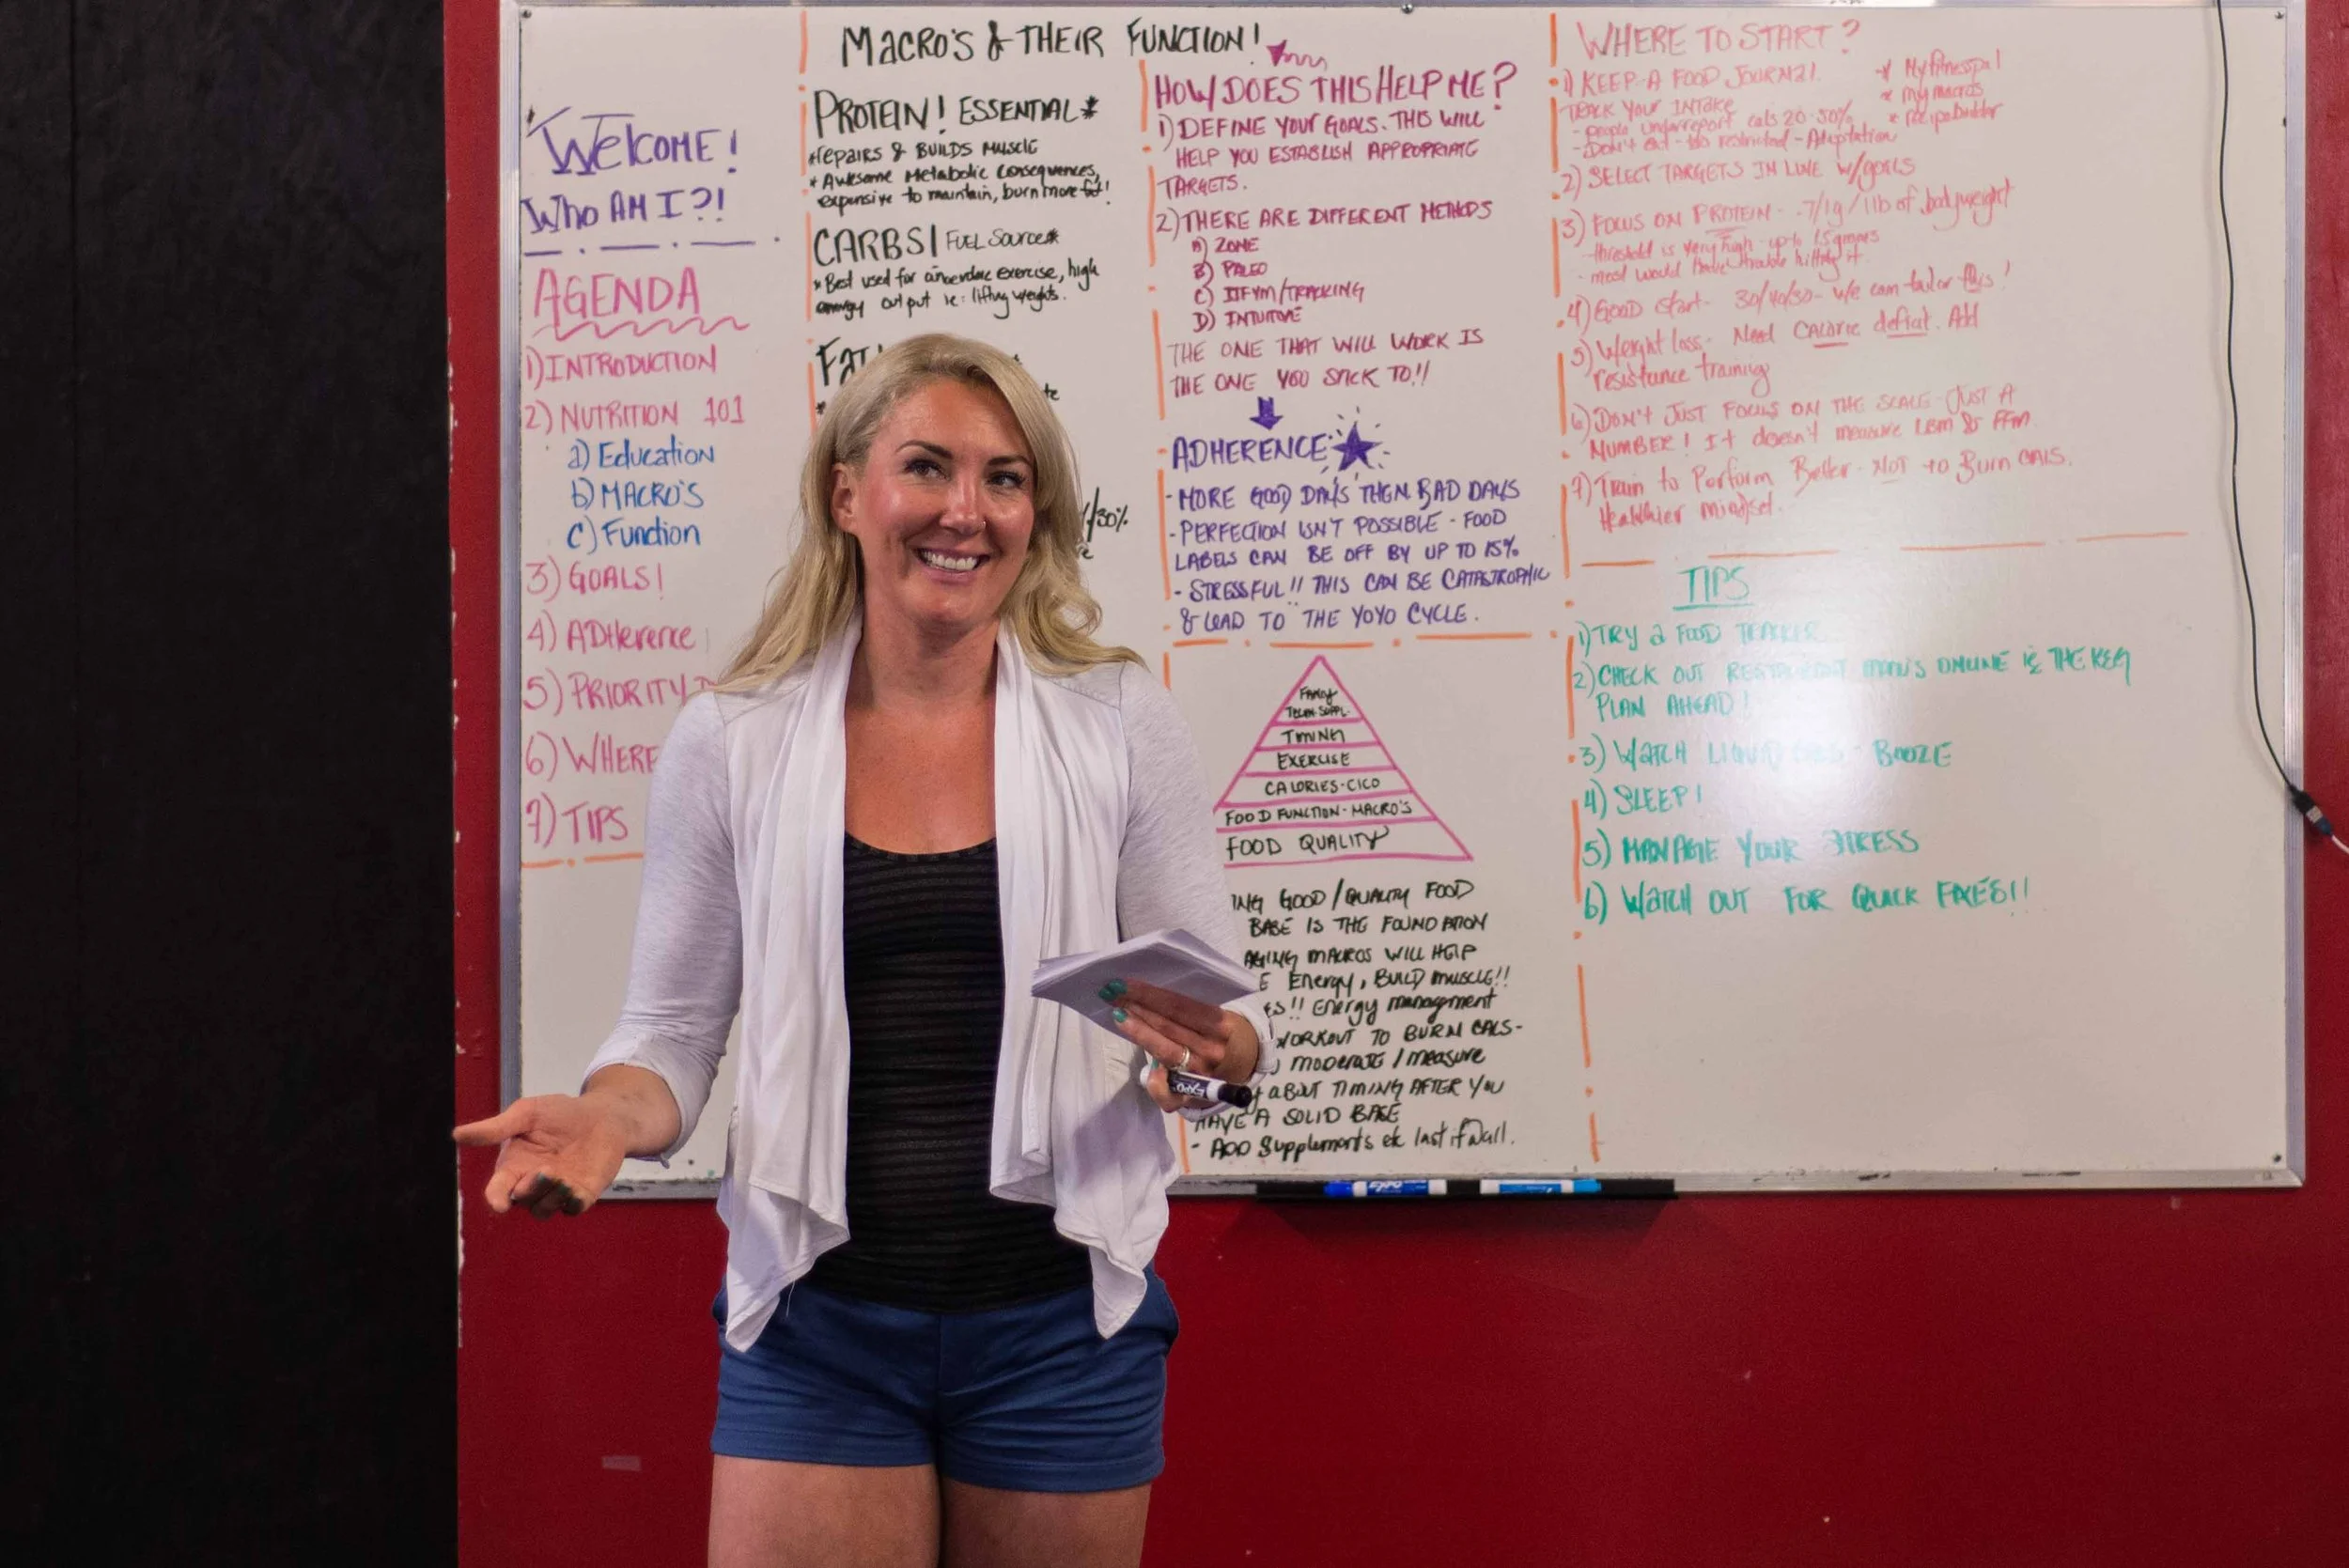 WELCOME!
WHO AM I?!
AGENDA
1) INTRODUCTION
2) NUTRITION 101
a) Education
b) MACRO'S
c) Function
3) GOALS!
4) ADHerence
5) PRIORITY
6) WHERE
7) TIPS
MACRO'S & THEIR FUNCTION!
PROTEIN! ESSENTIAL*
*repairs & BUILDS MUSCLE
* Awesome Metabolic consequences,
expensive to maintain, burn more fat!
CARBS! FUEL Source*
* Best used for exercise, high
energy output ie: lifting weights.
FAT
/30%
HOW DOES THIS HELP ME?
1) DEFINE YOUR GOALS. THIS WILL
HELP YOU ESTABLISH APPROPRIATE
TARGETS.
2) THERE ARE DIFFERENT METHODS
A) ZONE
B) PALEO
C) IIFYM/TRACKING
D) INTUITIVE
THE ONE THAT WILL WORK IS
THE ONE YOU STICK TO!!
ADHERENCE
- MORE GOOD DAYS THEN BAD DAYS
- PERFECTION ISN'T POSSIBLE - FOOD
LABELS CAN BE OFF BY UP TO 15%
- STRESSFUL!! THIS CAN BE CATASTROPHIC
& LEAD TO "THE YOYO CYCLE.
TIMING
EXERCISE
CALORIES-CICO
FOOD FUNCTION - MACRO'S
FOOD QUALITY
ING GOOD/QUALITY FOOD
BASE IS THE FOUNDATION
AGING MACROS WILL HELP
E Energy, BUILD MUSCLE!!
ES!! Energy management
WORKOUT TO BURN CALS-
MODERATE / measure
ABOUT TIMING AFTER YOU
HAVE A SOLID BASE
- ADD Supplements etc last if at all.
WHERE TO START?
1) KEEP A FOOD JOURNAL.
* Myfitnesspal
* My macros
TRACK YOUR INTAKE
- people underreport cals 20-50%
- Don't eat - too restricted - Adaptation
2) SELECT TARGETS IN LINE W/goals
3) FOCUS ON PROTEIN - .7/1g/1lb of bodyweight
- threshold is very high - up to 1.5 grams
- most would have trouble hitting it.
4) GOOD Start - 30/40/30 - we can tailor this!
5) Weight loss - Need CALORIC deficit. Add
resistance training
6) DON'T JUST FOCUS ON THE SCALE - JUST A
NUMBER! It doesn't measure LBM & FFM.
7) Train to Perform Better - NOT to Burn CALS.
Healthier mindset.
TIPS
1) TRY a FOOD TRACKER
2) CHECK OUT RESTAURANT MENU'S ONLINE is THE KEY
PLAN AHEAD!
3) WATCH LIQUID BOOZE
4) SLEEP!
5) MANAGE YOUR STRESS
6) WATCH OUT FOR QUICK FIXES!!
EXPO
EXPO